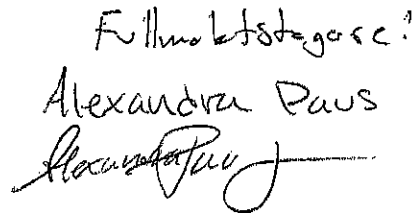 Fullmaktstagare:
Alexandra Paus
Alexandra Paus